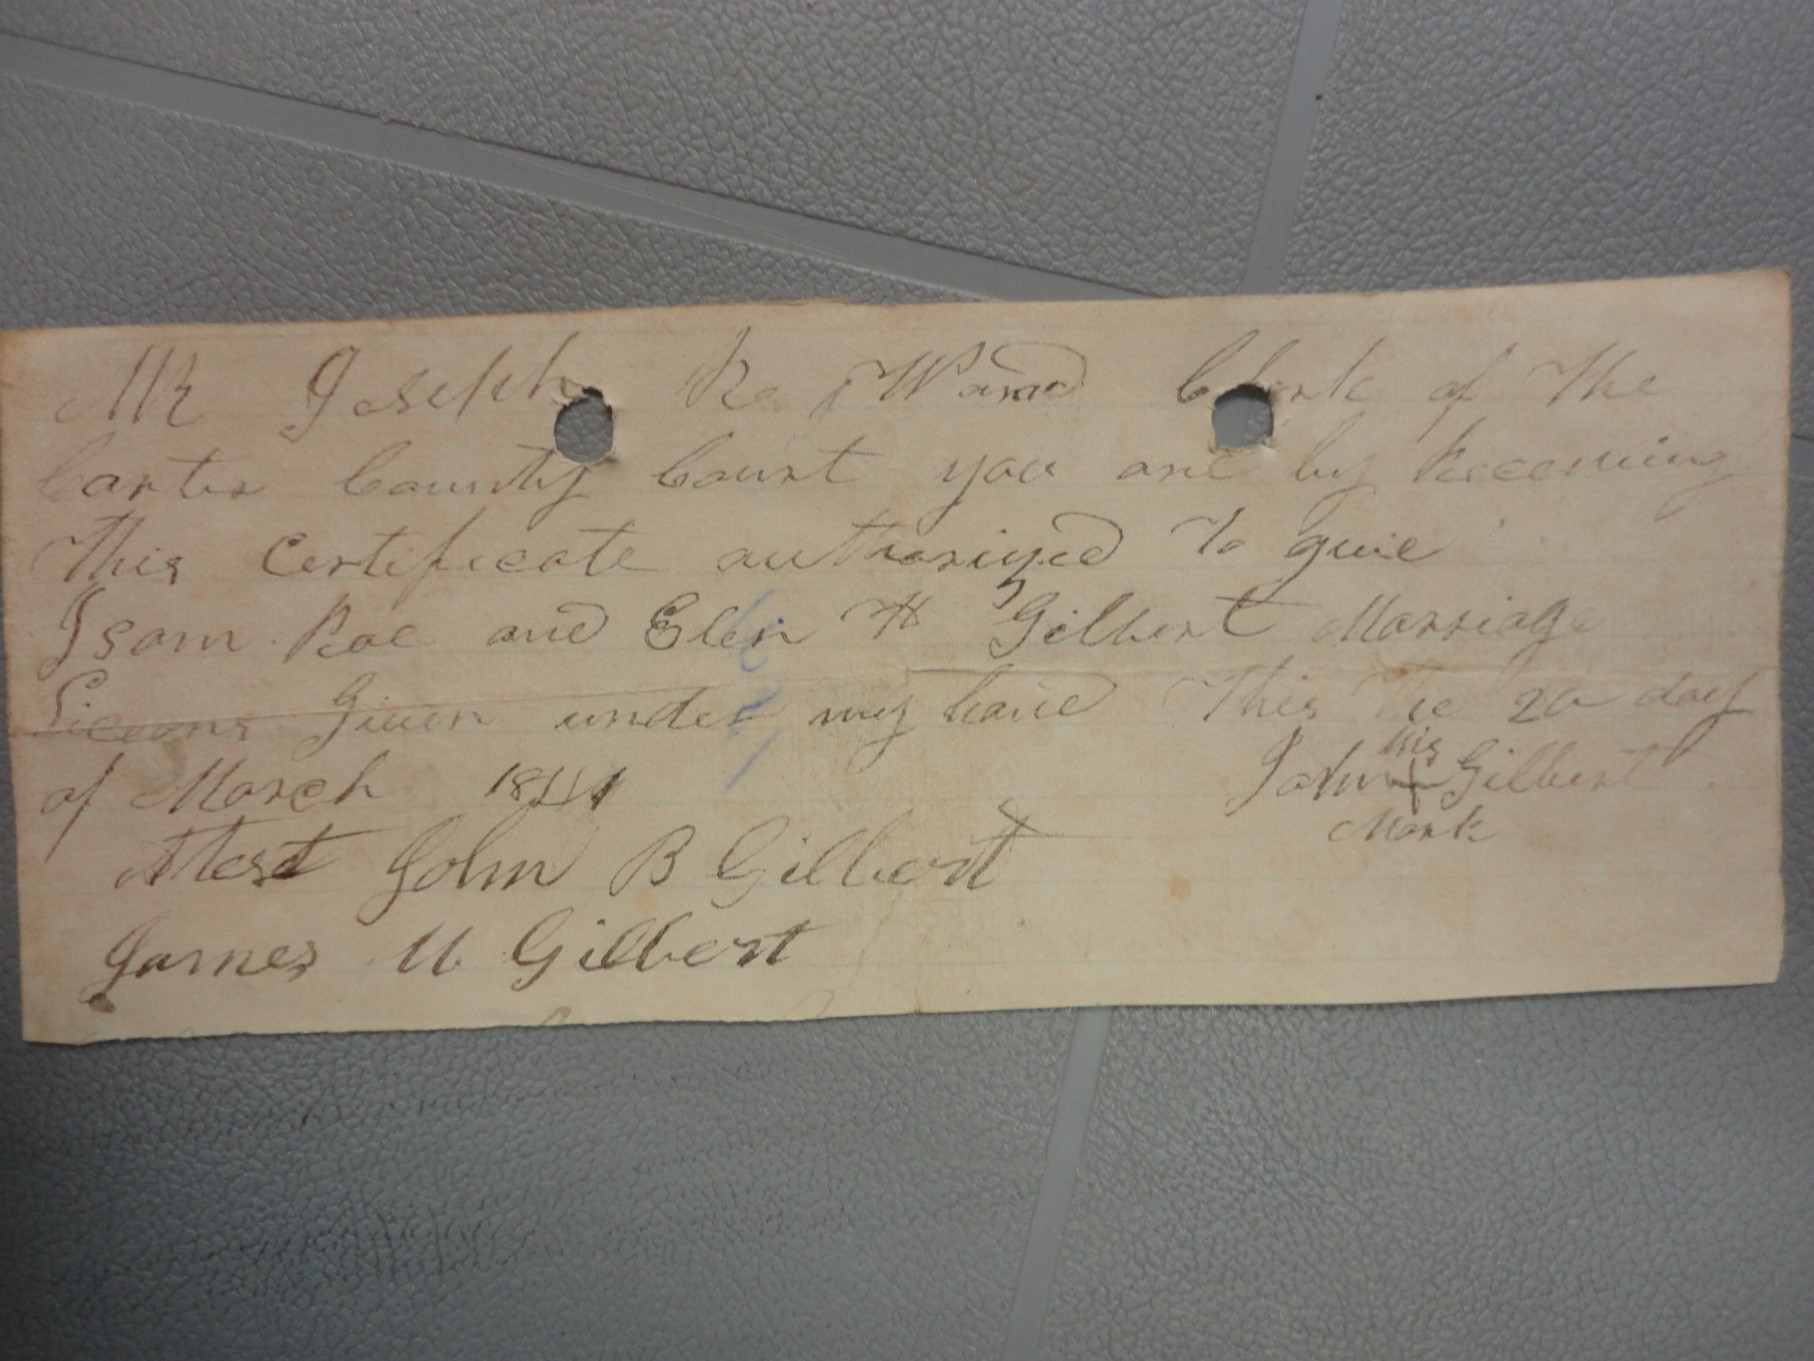 MR Joseph R Ward Clerk of The
Carter County Court you are by Receeuing
This Certificate authorized To giuie
Isom Roe and Elen H Gilbert Marriage
Liceons Giuen under my hand This the 20 day
of March 1841 John his + mark Gilbert
Attest John B Gilbert
James M Gilbert